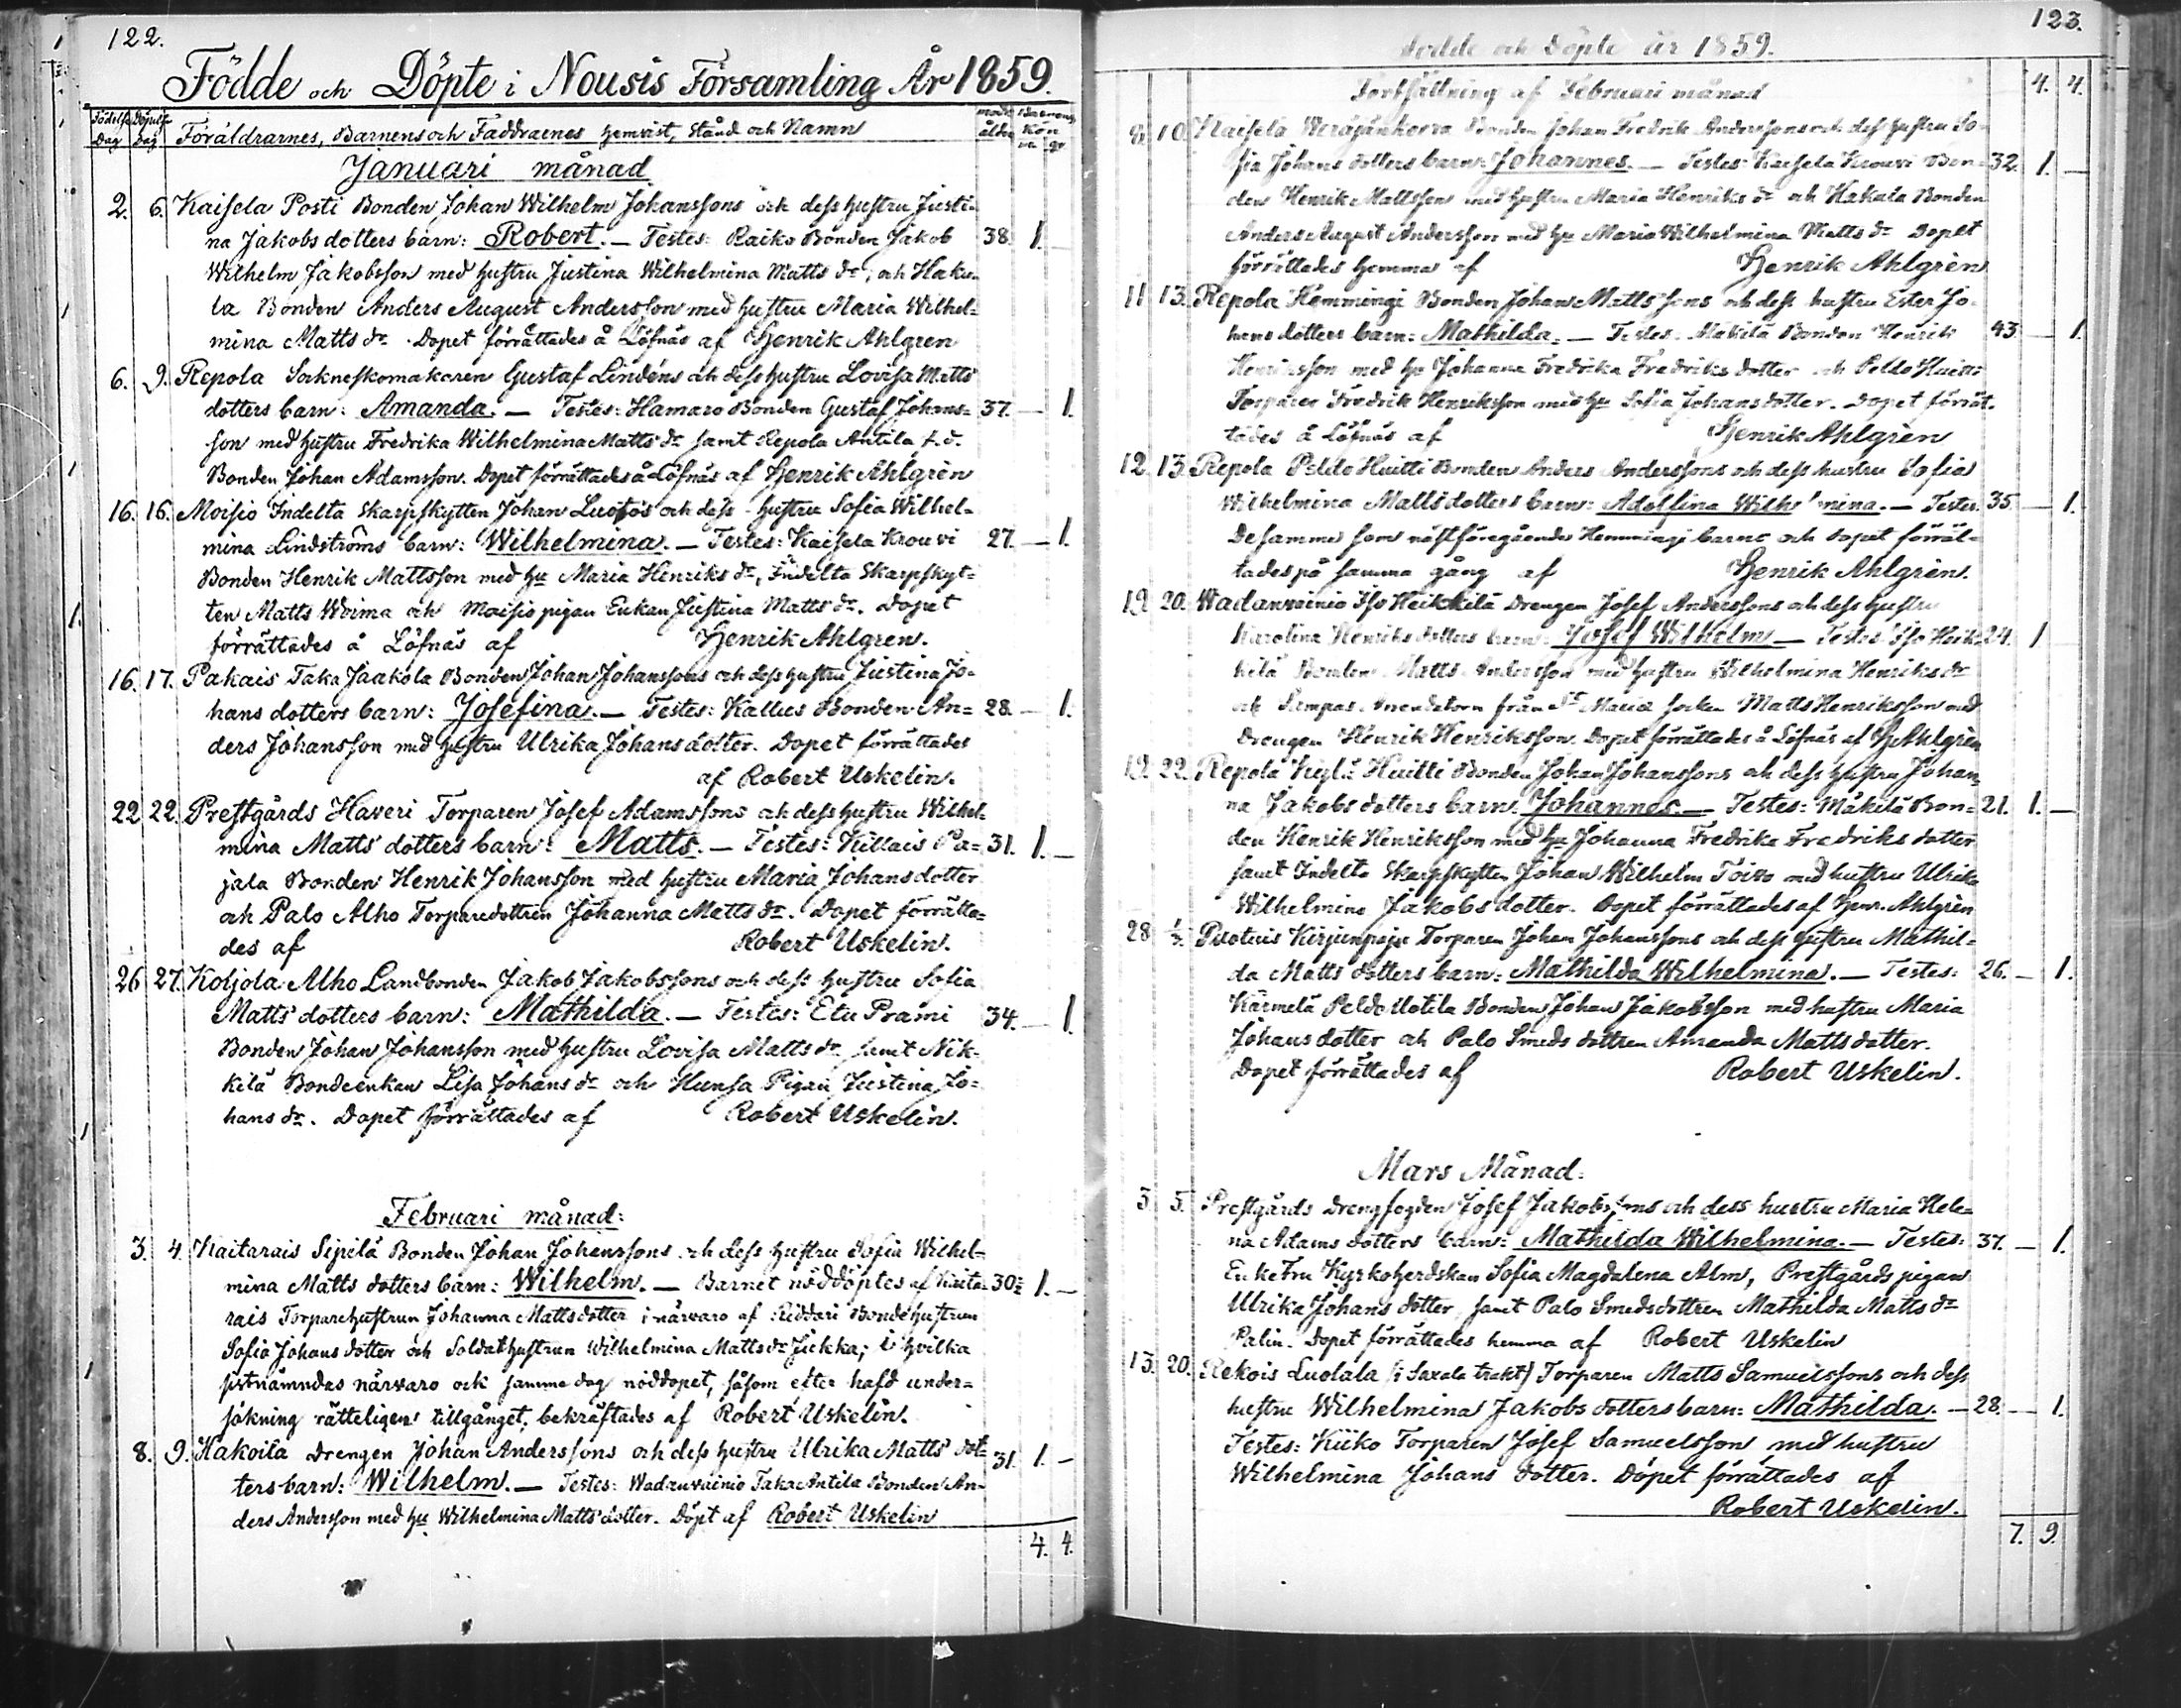 122.
Födde och Döpte i Nousis Församling År 1859.
Födelse Dag Döpelse Dag Föräldrarnes, Barnens och Faddrarnes hemvist, Stånd och Namn ålder kön
Januari månad
2. 6. Kaisela Posti Bonden Johan Wilhelm Johanssons och dess hustru Justi-
na Jakobs dotters barn: Robert. — Testes: Raiko Bonden Jakob 38. 1. —
Wilhelm Jakobsson med hustru Justina Wilhelmina Matts dr, och Haku-
la Bonden Anders August Andersson med hustru Maria Wilhel-
mina Matts dr. Dopet förrättades å Löfnäs af Henrik Ahlgren
6. 9. Repola Sockneskomakaren Gustaf Lindéns och dess hustru Lovisa Matts
dotters barn: Amanda. — Testes: Hamaro Bonden Gustaf Johans- 37. — 1.
son med hustru Fredrika Wilhelmina Matts dr samt Repola Antila f. d.
Bonden Johan Adamsson. Dopet förrättades å Löfnäs af Henrik Ahlgrèn
16. 16. Moisio Indelta Skarpskytten Johan och dess hustru Sofia Wilhel-
mina Lindströms barn: Wilhelmina. — Testes: Kaisela Krouvi 27. — 1.
Bonden Henrik Mattsson med hu Maria Henriks dr, Indelta Skarpskyt-
ten Matts Woima och Moisio pigan Enkan Justina Matts dr. Dopet
förrättades å Löfnäs af Henrik Ahlgren.
16. 17. Pakais Taka Jaakola Bonden Johan Johanssons och dess hustru Justina Jo-
hans dotters barn: Josefina. — Testes: Kallus Bonden An- 28. — 1.
ders Johansson med hustru Ulrika Johans dotter. Dopet förrättades
af Robert Uskelin.
22 22. Prestgårds Haveri Torparen Josef Adamssons och dess hustru Wilhel-
mina Matts dotters barn: Matts. — Testes: Killais Pa- 31. 1. —
jala Bonden Henrik Johansson med hustru Maria Johans dotter
och Palo Alho Torparedottren Johanna Matts dr. Dopet förrätta-
des af Robert Uskelin.
26 27. Koljola Alho Landbonden Jakob Jakobssons och dess hustru Sofia
Matts dotters barn: Mathilda. — Testes: Etu Prami 34. — 1.
Bonden Johan Johansson med hustru Lovisa Matts dr samt Nik-
kilä Bondeenkan Lisa Johans dr och Hunsa Pigan Justina Jo-
hans dr. Dopet förrättades af Robert Uskelin.
Februari månad:
3. 4. Kaitarais Sipilä Bonden Johan Johanssons och dess hustru Sofia Wilhel-
mina Matts dotters barn: Wilhelm. — Barnet nöddöptes af Kaita- 30 1. —
rais Torparehustrun Johanna Matts dotter i närvaro af Riddari Bondehustrun
Sofia Johans dotter och Soldathustrun Wilhelmina Matts dr Jukka; i hvilka
sistnämndas närvaro och samma dag nöddopet, såsom efter hafd under-
sökning rätteligen tillgånget, bekräftades af Robert Uskelin.
8. 9. Hakoila Drengen Johan Anderssons och dess hustru Ulrika Matts dot- 31. 1. —
ters barn: Wilhelm. — Testes: Wadanvainio Taka Antila Bonden An-
ders Andersson med hu Wilhelmina Matts dotter. Döpt af Robert Uskelin
4. 4.
123.
Födde och Döpte år 1859.
Fortsättning af Februari månad 4. 4.
8. 10. Kaisela Weräjänkorva Bonden Johan Fredrik Anderssons och dess hustru So-
fia Johans dotters barn: Johannes. — Testes: Kaisela Krouvi Bon- 32. 1. —
den Henrik Mattsson med hustru Maria Henriks dr och Hakula Bonden
Anders August Andersson med hu Maria Wilhelmina Matts dr Dopet
förrättades hemma af Henrik Ahlgrèn
11 13. Repola Hemmingi Bonden Johan Matts sons och dess hustru Ester Jo-
hans dotters barn: Mathilda. — Testes: Mäkilä Bonden Henrik 43. — 1.
Henriksson med hu Johanna Fredrika Fredriks dotter och Peldo Huitti
Torparen Fredrik Henriksson med hu Sofia Johans dotter. Dopet förrät-
tades å Löfnäs af Henrik Ahlgrèn
12. 13. Repola Peldo Huitti Bonden Anders Anderssons och dess hustru Sofia
Wilhelmina Matts dotters barn: Adolfina Wilhelmina. — Testes: 35. — 1.
Desamma som nästföregående Hemmingi barns och dopet förrät-
tades på samma gång af Henrik Ahlgrèn.
19. 20. Wadanvainio Iso Heikkilä Drengen Josef Anderssons och dess hustru
Karolina Henriks dotters barn: Josef Wilhelm — Testes: Iso Heik- 24. 1
kilä Bonden Matts Andersson med hustru Wilhelmina Henriks dr
och Arendatorn från St Mariæ socken Matts Henriksson med
Drengen Henrik Henriksson. Dopet förrättades å Löfnäs af H. Ahlgrèn
19. 22. Repola Kylä Huitti Bonden Johan Johanssons och dess hustru Johan-
na Jakobs dotters barn: Johannes. — Testes: Mäkilä Bon- 21. 1. —
den Henrik Henriksson med hu Johanna Fredrika Fredriks dotter
samt Indelta Skarpskytten Johan Wilhelm Toivo med hustru Ulrika
Wilhelmina Jakobs dotter. Dopet förrättades af Henr. Ahlgrèn
28 1/3. Puotuis Torparen Johan Johanssons och dess hustru Mathil-
da Matts dotters barn: Mathilda Wilhelmina. — Testes: 26. — 1.
Kärmelä Peldo Uotila Bonden Johan Jakobsson med hustru Maria
Johans dotter och Palo Smeds dottren Amanda Matts dotter.
Dopet förrättades af Robert Uskelin.
Mars Månad:
3 5. Prestgårds Drengfogden Josef Jakobssons och dess hustru Maria Hele-
na Adams dotters barn: Mathilda Wilhelmina. — Testes: 37. — 1.
Enkefru Kyrkoherdskan Sofia Magdalena Alm, Prestgårds pigan
Ulrika Johans dotter samt Palo Smedsdottren Mathilda Matts dr
Palin. Dopet förrättades hemma af Robert Uskelin
13. 20. Rekois Luolala (i Saxala trakt) Torparen Matts Samuelssons och dess
hustru Wilhelmina Jakobs dotters barn: Mathilda. — 28. — 1.
Testes: Kiiko Torparen Josef Samuelsson med hustru
Wilhelmina Johans dotter. Döpet förrättades af
Robert Uskelin.
7. 9.